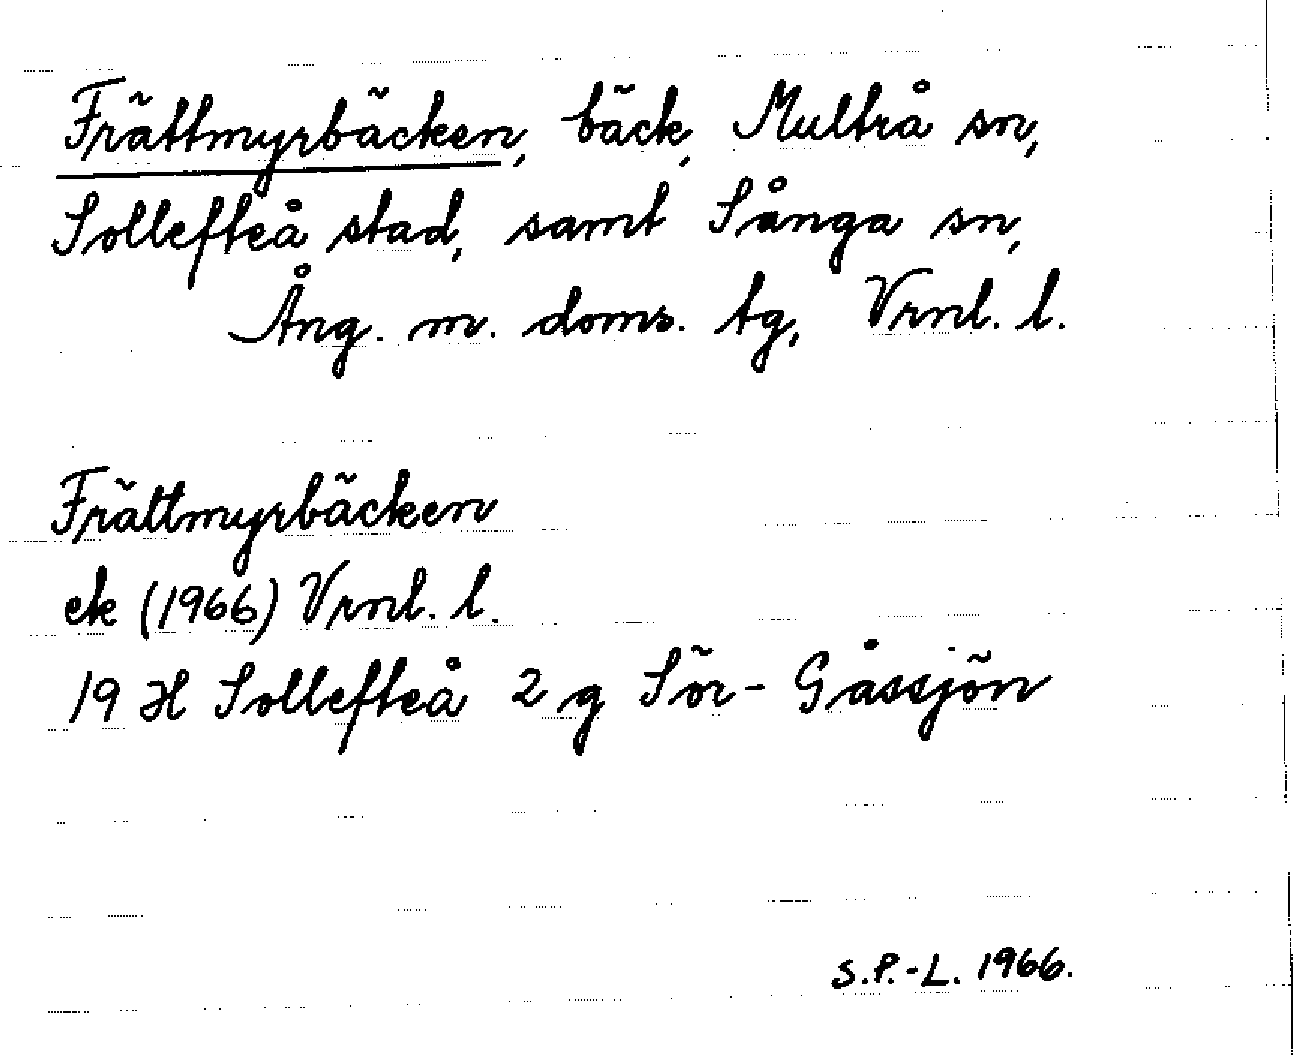 Frättmyrbäcken, bäck, Multrå sn,
Sollefteå stad, samt Sånga sn,
Ång. m. doms. tg, Vrnl. l.
Frättmyrbäcken
ek (1966) Vrnl. l.
19 H Sollefteå 2 g Sör-Gåssjön
S.P.-L. 1966.